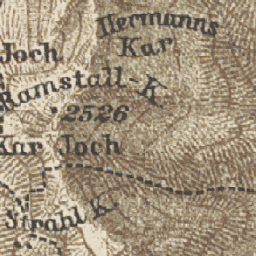 Hermanns
Kar
Joch
Ramstall-K.
2526
Kar Joch
Strahl K.